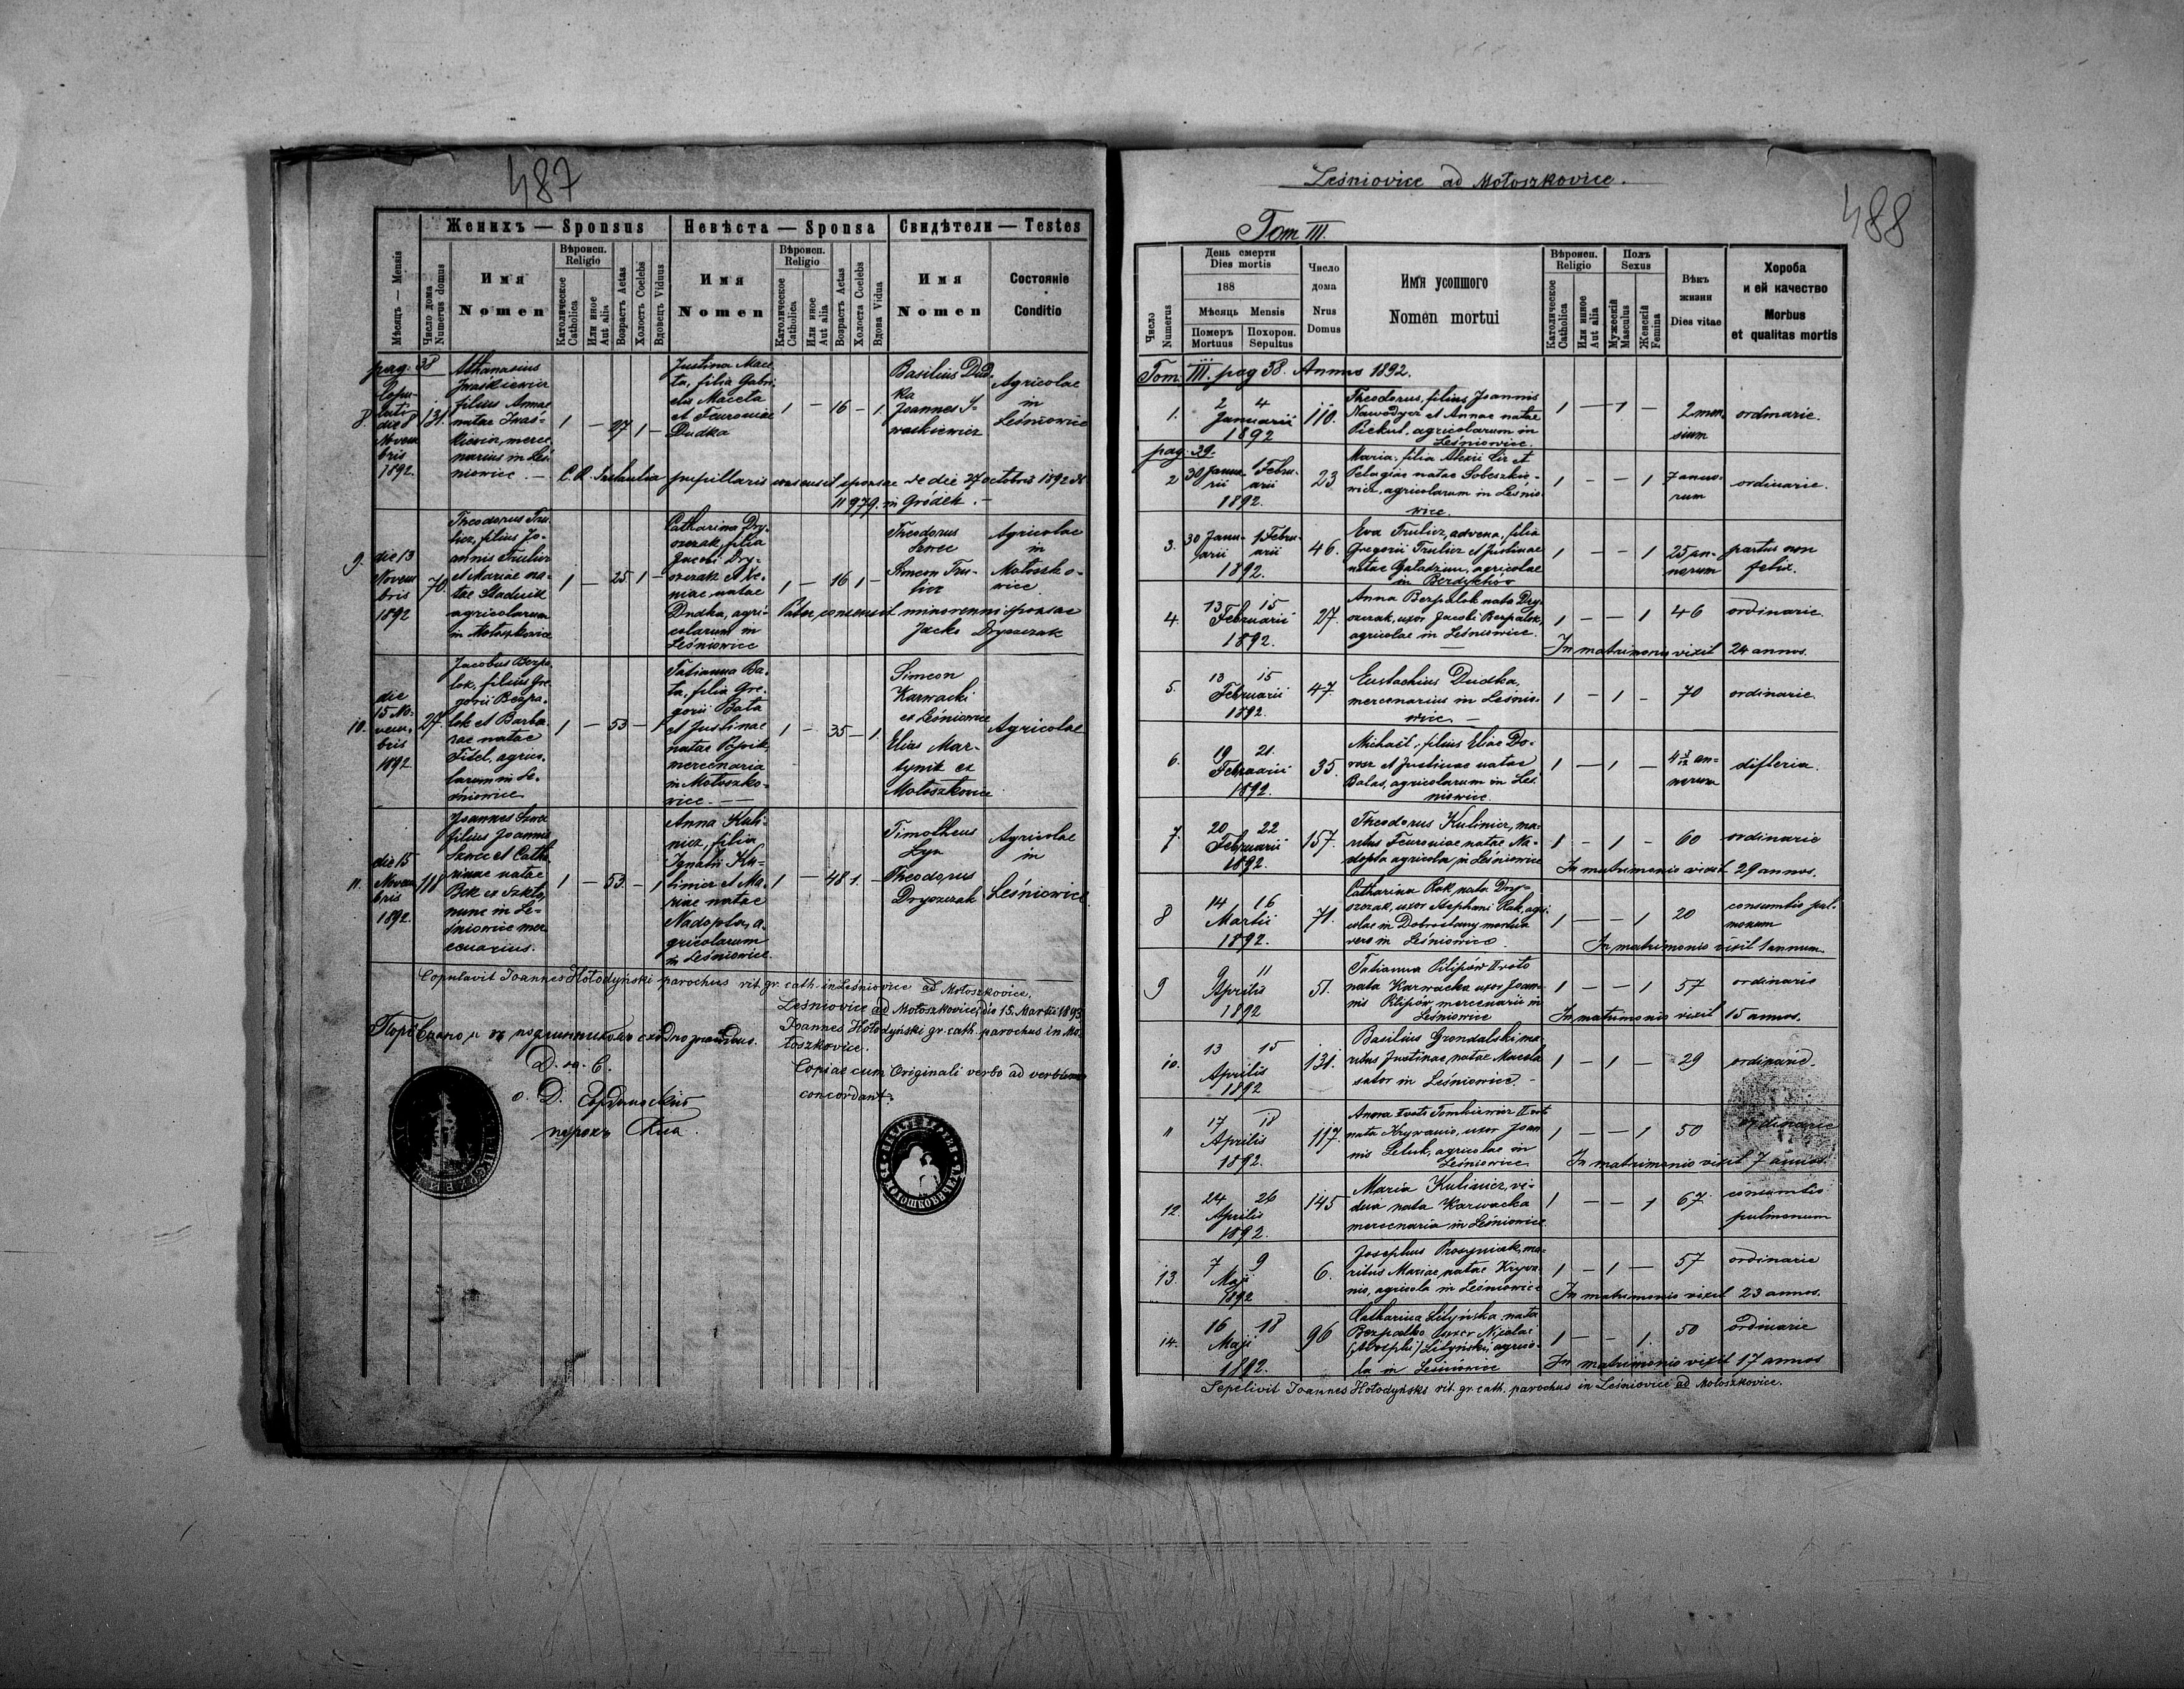 487
Женихъ — Sponsus
Невѣста — Sponsa
Свидѣтели — Testes
Мѣсяцъ — Mensis
Число дома
Numerus domus
Имя
Nomen
Вѣроисп.
Religio
Католическое
Catholica
Или иное
Aut alia
Возрастъ Aetas
Холостъ Coelebs
Вдовецъ Viduus
Имя
Nomen
Вѣроисп.
Religio
Католическое
Catholica
Или иное
Aut alia
Возрастъ Aetas
Холоста Coelebs
Вдова Vidua
Имя
Nomen
Состояніе
Conditio
pag. 38
8.
die 8
Novem
bris
1892.
131.
Athanasius
Iwaśkiewicz
filius Annae
natae Iwaś-
kiewicz, merce
narius in Leś
niowice.
1 — 27 1 —
Justina Mace
ta, filia Gabri
elis Maceta
et Feuroniae
Dudka
1 — 16 — 1.
Basilius Dud-
ka
Joannes I-
waśkiewicz
Agricolae
in
Leśniowice
pupillaris consensit sponsae de die 27 octobris 1892
11979. in Gródek. —
9.
die 13
Novem
bris
1892
70.
Theodorus Tru
licz, filius Jo-
annis Trulicz
et Mariae na-
tae Staduik
agricolarum
in Motoszkowice
1 — 25 1 —
Catharina Dry-
oszak, filia
Jacobi Dry-
oszak et Xe-
niae natae
Dudka, agri-
colarum in
Leśniowice
1 — 16 1 —
Theodorus
Szwec
Simeon Tru-
licz
Agricolae
in
Motoszko-
wice
Pater consensit minorenni sponsae
Jacko Dryoszak
10.
die
15 No-
vem-
bris
1892.
27.
Jacobus Bezpa
lok, filius Gre
gorii Bezpa-
lok et Barba
rae natae
Fidel, agrico
larum in Le-
śniowice
1 — 53 — 1
Tatianna Ba-
ta, filia Gre-
gorii Bata
et Justinae
natae Popik
mercenaria
in Motoszko-
wice. —
1 — 35 — 1.
Simeon
Karwacki
ex Leśniowice
Elias Mar-
tynik ex
Motoszkowice
Agricolae
11.
die 15
Novem
bris
1892.
118
Joannes Szwec
filius Joannis
Szwec et Catha
rinae natae
Bek ex Szkto,
nunc in Le-
śniowice mer
cenarius.
1 — 53 — 1
Anna Kuli-
nicz, filia
Ignatii Ku-
linicz et Ma-
riae natae
Nadopta, a-
gricolarum
in Leśniowice.
1 — 48 1. —
Timotheus
Lyn
Theodorus
Dryoszak
Agricolae
in
Leśniowice.
Copulavit Joannes Hołodyński parochus rit. gr. cath. in Leśniovice ad Mołoszkovice.
Leśniovice ad Mołoszkovice, die 15. Martii 1893
Joannes Hołodyński gr. cath. parochus in Mo-
łoszkovice.
Copiae cum Originali verbo ad verbum
concordant.
488
Leśniovice ad Mołoszkovice.
Tom III.
Число
Numerus
День смерти
Dies mortis
188
Мѣсяць Mensis
Померъ
Mortuus
Похорон.
Sepultus
Число
дома
Nrus
Domus
Имя усопшого
Nomen mortui
Вѣроисп.
Religio
Католическое
Catholica
Или иное
Aut alia
Полъ
Sexus
Мужескій
Masculus
Женскій
Femina
Вѣкъ
жизни
Dies vitae
Хороба
и ей качество
Morbus
et qualitas mortis
Tom. III. pag 38. Annus 1892.
1.
2 4
Januarii
1892
110.
Theodorus, filius Joannis
Nawodyer et Annae natae
Piekut, agricolarum in
Leśniowice.
1 — 1 —
2 men
sium
ordinarie.
pag. 39.
2
30 Janua
rii
1 Febru-
arii
1892.
23
Maria, filia Alexii Lis et
Pelagiae natae Sobeszkie-
wicz, agricolarum in Leśnio
wice.
1 — — 1
7 anno-
rum
ordinarie.
3.
30 Janu-
arii
1 Febru-
arii
1892.
46.
Eva Trulicz, advena, filia
Gregorii Trulicz et Justinae
natae Galadziun, agricolae
in Berdychów
1 — — 1
25 an-
norum
partus non
felix.
4.
13 15
Februarii
1892.
27.
Anna Bezpalok nata Dry-
oszak, uxor Jacobi Bezpalok,
agricolae in Leśniowice.
1 — — 1
46
ordinarie.
In matrimonio vixit 24 annos.
5.
13 15
Februarii
1892.
47.
Eustachius Dudka,
mercenarius in Leśnio-
wice —
1 — 1 —
70
ordinarie
6.
19 21.
Februarii
1892.
35.
Michaël, filius Eliae Do-
rosz et Justinae natae
Balas, agricolarum in Leś
niowice.
1 — 1 —
an-
norum
difteria.
7.
20 22
Februarii
1892.
157.
Theodorus Kulinicz, ma-
ritus Feuroniae natae Na-
dopta agricola in Leśniowice
1 — 1 —
60
ordinarie
In matrimonio vixit 29 annos.
8
14 16
Martii
1892.
71.
Catharina Rak nata Dry-
oszak, uxor Stephani Rak, agri
colae in Dobrostany mortua
vero in Leśniowice.
1 — — 1
20
consumtio pul-
monum
In matrimonio vixit 1 annum.
9
9 11
Aprilis
1892
51.
Tatianna Pilipów II voto
nata Karwacka uxor Joan-
nis Pilipów, mercenarii in
Leśniowice
1 — — 1
57
ordinarie
In matrimonio vixit 15 annos.
10.
13 15
Aprilis
1892
131.
Basilius Grondalski, ma
ritus Justinae, natae Maceta
sator in Leśniowice. —
1 — 1 —
29
ordinarie.
11
17 18
Aprilis
1892.
117.
Anna I voto Tomkiewicz II vot
nata Krywanio, uxor Joan
nis Leluk, agricolae in
Leśniowice
1 — — 1
50
ordinarie
In matrimonio vixit 7 annos.
12.
24 26
Aprilis
1892.
145
Maria Kulinicz, vi-
dua nata Karwacka
mercenaria in Leśniowice.
1 — — 1
67.
consumtio
pulmonum
13.
7 9
Maji
1892
6.
Josephus Prosyniak, ma-
ritus Mariae, natae Krywa
nio, agricola in Leśniowice
1 — 1 —
57
ordinarie
In matrimonio vixit 23 annos.
14.
16 18
Maji
1892.
96
Catharina Lityńska nata
Bezpalko uxor Nicolai
(Josephi) Lityński, agrico-
la in Leśniowice
1 — — 1.
50
ordinarie
In matrimonio vixit 17 annos
Sepelivit Joannes Hołodyński rit. gr. cath. parochus in Leśniovice ad Mołoszkovice.